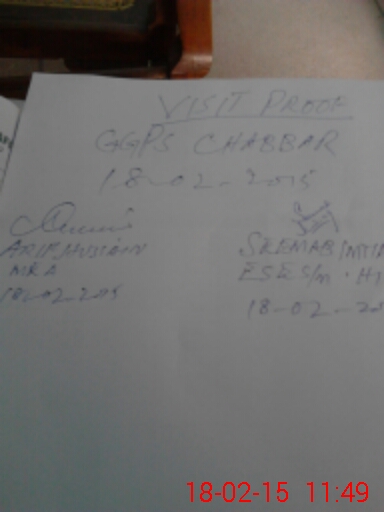 VISIT PROOF
GGPS CHABBAR
18-02-2015
ARIF HUSSAIN
MEA
18-02-2015
ESE S/m.
18-02-20
18-02-15 11:49